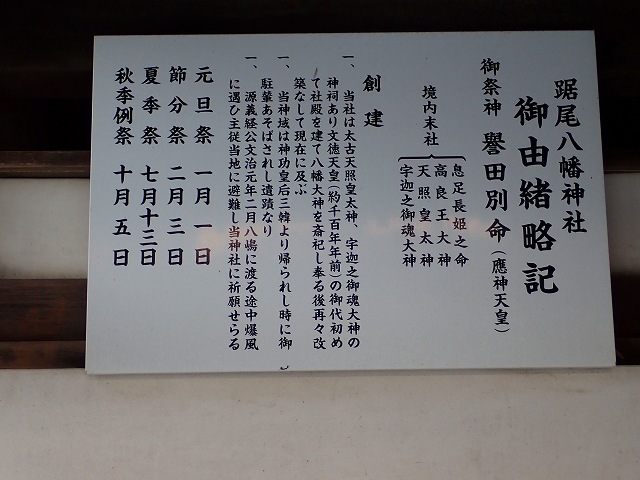 踞尾八幡神社
御由緒略記
御祭神 譽田別命(應神天皇)
境内末社
息足長姫之命
高良王大神
天照皇太神
宇迦之御魂大神
創建
一、当社は太古天照皇太神、宇迦之御魂大神の
神祠あり文徳天皇(約千百年前)の御代初め
て社殿を建て八幡大神を斎祀し奉る後再々改
築なして現在に及ぶ
一、当神域は神功皇后三韓より帰られし時に御
駐輦あそばされし遺蹟なり
一、源義経公文治元年二月八嶋に渡る途中爆風
に遇ひ主従当地に避難し当神社に祈願せらる
元旦祭 一月一日
節分祭 二月三日
夏季祭 七月十三日
秋季例祭 十月五日